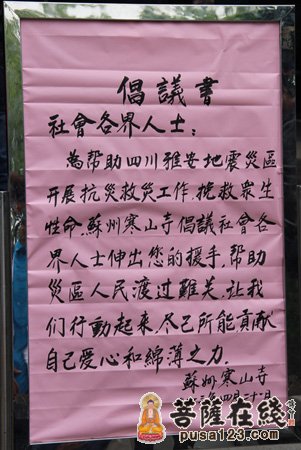 倡議書
社會各界人士：
為帮助四川雅安地震災區
开展抗災救災工作，挽救衆生
性命，蘇州寒山寺倡議社會各
界人士伸出您的援手，帮助
災區人民渡过難关，让我
们行動起來，尽己所能貢献
自己爱心和綿薄之力。
蘇州寒山寺
菩薩在綫
pusa123.com